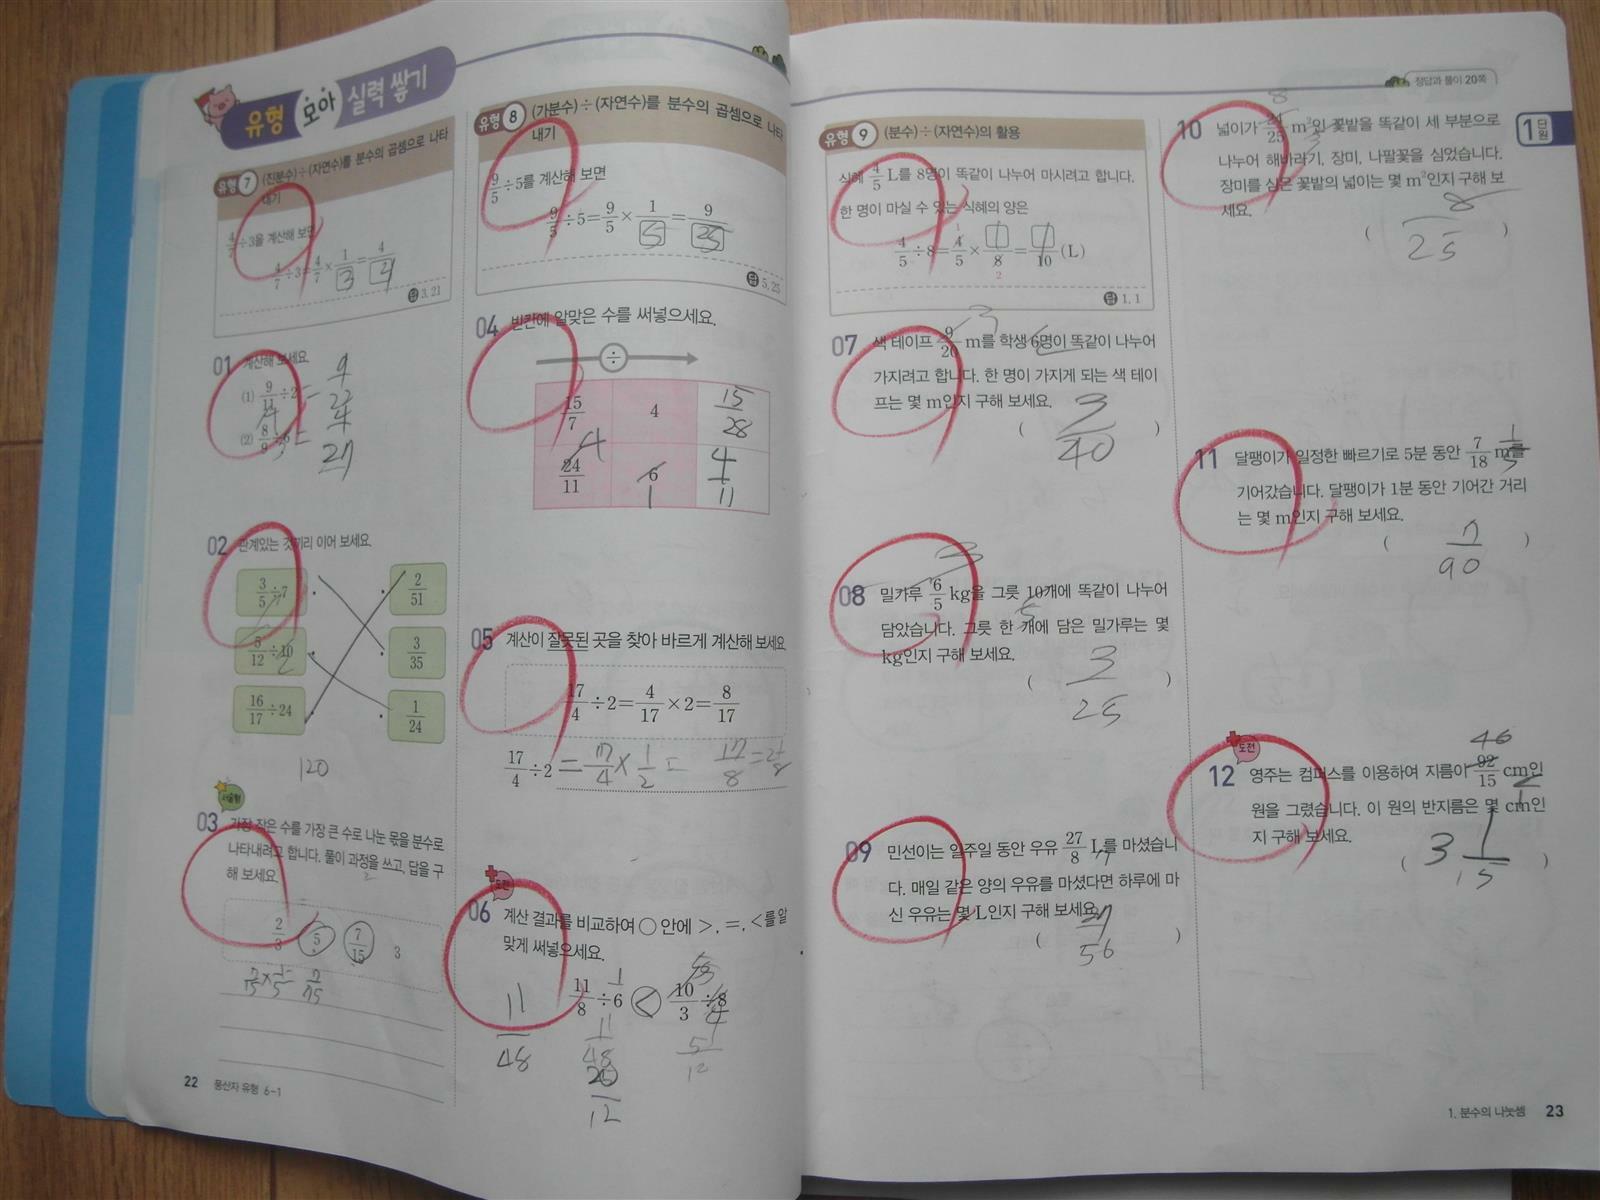 유형 모아 실력 쌓기
유형 7 (진분수)÷(자연수)를 분수의 곱셈으로 나타
내기
4/7÷3을 계산해 보면
4/7÷3=4/7×1/3=4/21
답 3, 21
01 계산해 보세요.
(1) 9/11÷2= 9/22
(2) 8/9÷6= 4/27
02 관계있는 것끼리 이어 보세요.
3/5÷7 2/51
5/12÷10 3/35
16/17÷24 1/24
120
서술형
03 가장 작은 수를 가장 큰 수로 나눈 몫을 분수로
나타내려고 합니다. 풀이 과정을 쓰고, 답을 구
해 보세요.
2/3 5 7/15 3
7/15×1/5=7/75
22 풍산자 유형 6-1
유형 8 (가분수)÷(자연수)를 분수의 곱셈으로 나타
내기
9/5÷5를 계산해 보면
9/5÷5=9/5×1/5=9/25
답 5, 25
04 빈칸에 알맞은 수를 써넣으세요.
÷
15/7 4 15/28
24/11 6 4/11
4 1
05 계산이 잘못된 곳을 찾아 바르게 계산해 보세요.
17/4÷2=4/17×2=8/17
17/4÷2=17/4×1/2=17/8=2 1/8
도전
06 계산 결과를 비교하여 ○ 안에 >, =, <를 알
맞게 써넣으세요.
11/8÷6 < 10/3÷8
11/48 11/48 5/12
12
정답과 풀이 20쪽
1단원
유형 9 (분수)÷(자연수)의 활용
식혜 4/5 L를 8명이 똑같이 나누어 마시려고 합니다.
한 명이 마실 수 있는 식혜의 양은
4/5÷8=4/5×1/8=1/10(L)
답 1, 1
07 색 테이프 9/20 m를 학생 6명이 똑같이 나누어
가지려고 합니다. 한 명이 가지게 되는 색 테이
프는 몇 m인지 구해 보세요.
( 3/40 )
08 밀가루 6/5 kg을 그릇 10개에 똑같이 나누어
담았습니다. 그릇 한 개에 담은 밀가루는 몇
kg인지 구해 보세요.
( 3/25 )
09 민선이는 일주일 동안 우유 27/8 L를 마셨습니
다. 매일 같은 양의 우유를 마셨다면 하루에 마
신 우유는 몇 L인지 구해 보세요.
( 27/56 )
10 넓이가 24/25 m²인 꽃밭을 똑같이 세 부분으로
나누어 해바라기, 장미, 나팔꽃을 심었습니다.
장미를 심은 꽃밭의 넓이는 몇 m²인지 구해 보
세요.
( 8/25 )
11 달팽이가 일정한 빠르기로 5분 동안 7/18 m를
기어갔습니다. 달팽이가 1분 동안 기어간 거리
는 몇 m인지 구해 보세요.
( 7/90 )
도전
12 영주는 컴퍼스를 이용하여 지름이 92/15 cm인
원을 그렸습니다. 이 원의 반지름은 몇 cm인
지 구해 보세요.
( 3 1/15 )
1. 분수의 나눗셈 23